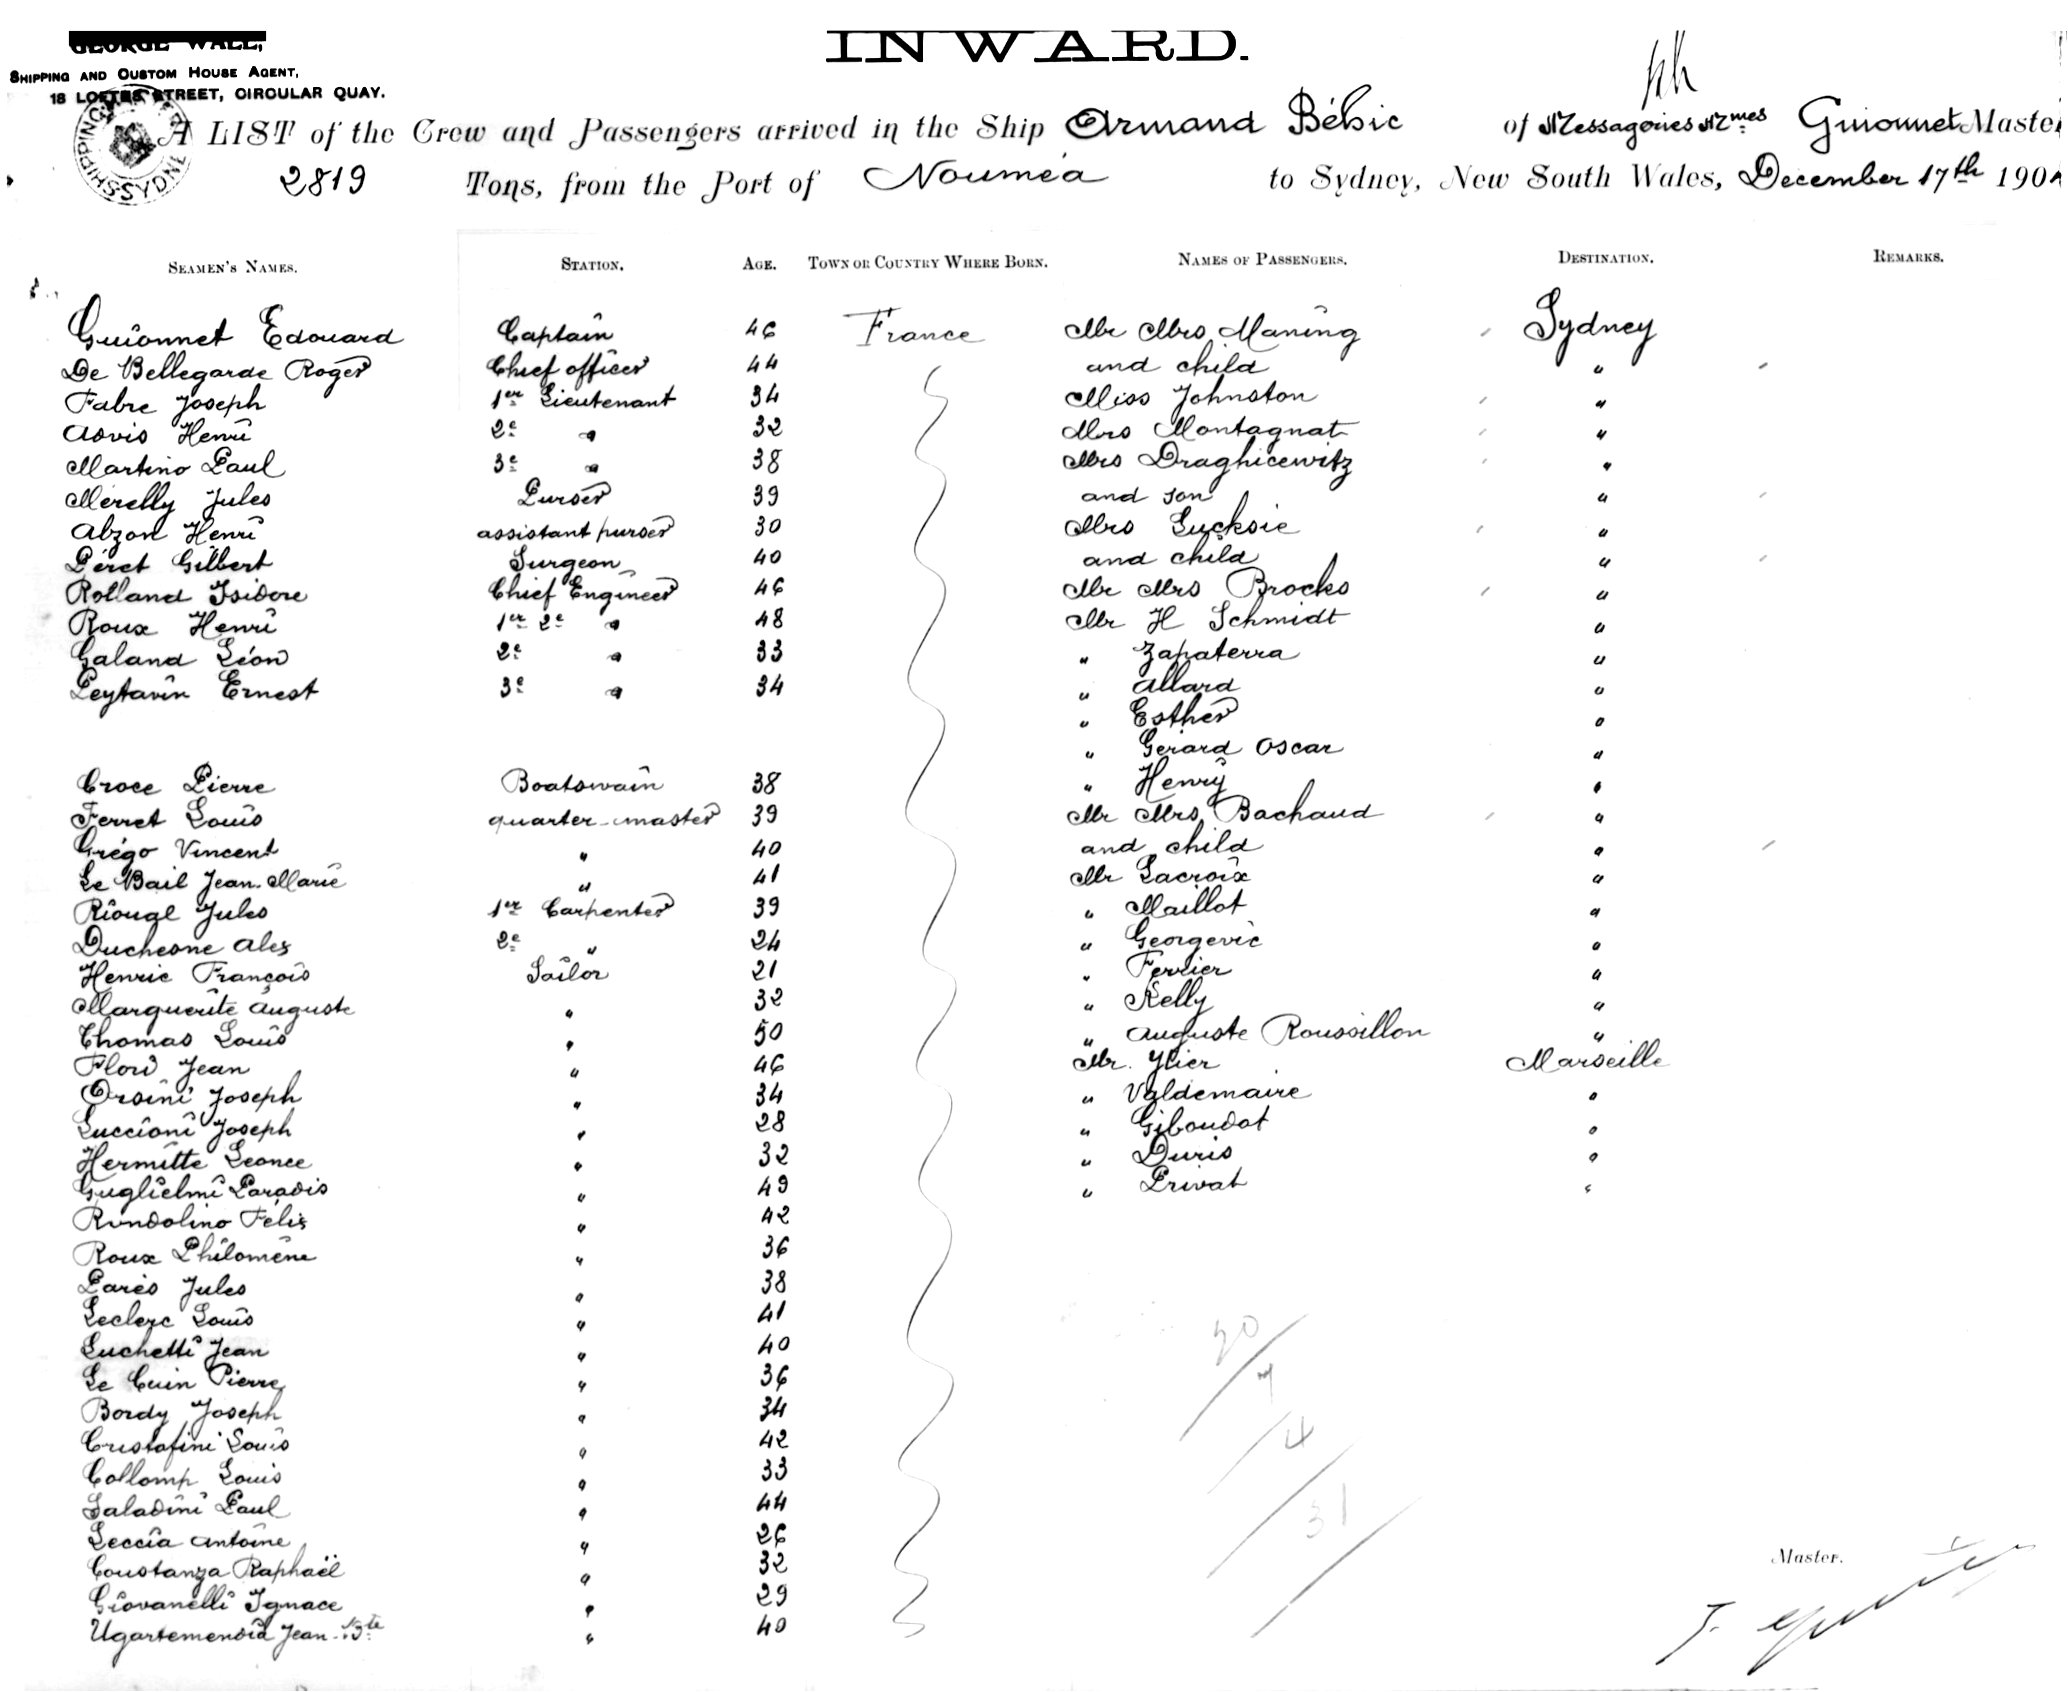 INWARD.
GEORGE WALL,
SHIPPING AND CUSTOM HOUSE AGENT,
18 LOFTUS STREET, CIRCULAR QUAY.
A LIST of the Crew and Passengers arrived in the Ship Armand Béhic of Messageries Mmes Guionnet Master
2819 Tons, from the Port of Nouméa to Sydney, New South Wales, December 17th 190
SEAMEN'S NAMES. STATION. AGE. TOWN OR COUNTRY WHERE BORN. NAMES OF PASSENGERS. DESTINATION. REMARKS.
Guionnet Edouard Captain 46 France Mr Mrs Maning Sydney
De Bellegarde Roger Chief officer 44 and child "
Fabre Joseph 1er Lieutenant 34 Miss Johnston "
Asvis Henri 2e " 32 Mrs Montagnat "
Martino Paul 3e " 38 Mrs Draghicewitz "
Merelly Jules Purser 39 and son "
Abzon Henri assistant purser 30 Mrs Lucksie "
Péret Gilbert Surgeon 40 and child "
Rolland Isidore Chief Engineer 46 Mr Mrs Brocks "
Roux Henri 1er 2e " 48 Mr H Schmidt "
Galand Léon 2e " 33 " Zapaterra "
Peytavin Ernest 3e " 34 " Allard "
" Esther "
" Gerard Oscar "
Croce Pierre Boatswain 38 " Henry "
Ferret Louis quarter-master 39 Mr Mrs Bachaud "
Grégo Vincent " 40 and child "
Le Bail Jean-Marie " 41 Mr Lacroix "
Riougl Jules 1er Carpenter 39 " Maillot "
Duchesne Alex 2e " 24 " Georgevic "
Henric François Sailor 21 " Ferrier "
Marguerite Auguste " 32 " Kelly "
Thomas Louis " 50 " Auguste Roussillon "
Flori Jean " 46 Mr. Ylier Marseille
Orsini Joseph " 34 " Valdemaire "
Luccioni Joseph " 28 " Giboudot "
Hermitte Leonce " 32 " Duris "
Guglielmi Paradis " 49 " Privat "
Rondolino Félix " 42
Roux Philomène " 36
Parès Jules " 38
Leclerc Louis " 41
Luchetti Jean " 40
Le Cuin Pierre " 36
Bordy Joseph " 34
Cristofini Louis " 42
Collomp Louis " 33
Saladini Paul " 44
Leccia Antoine " 26
Coustanza Raphaël " 32
Giovanelli Ignace " 29
Ugartemendia Jean Bte " 40
20
7
4
31
Master.